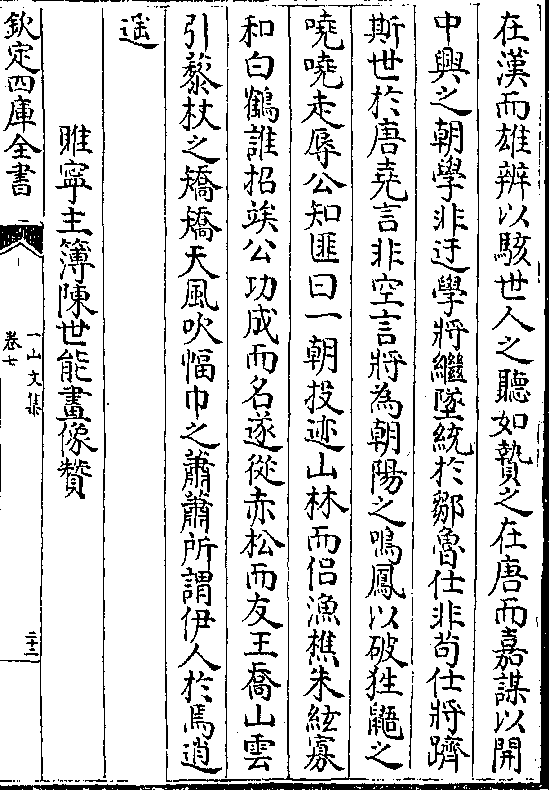 在漢而雄辨以駭世人之聽如贄之在唐而嘉謀以開
中興之朝學非迂學將繼墜統於鄒魯仕非苟仕將躋
斯世於唐堯言非空言將為朝陽之鳴鳳以破狌鼯之
嘵嘵走辱公知匪曰一朝投迹山林而侣漁樵朱絃寡
和白鶴誰招竢公功成而名遂從赤松而友王喬山雲
引藜杖之矯矯天風吹幅巾之蕭蕭所謂伊人於焉逍
遥
睢寧主簿陳世能畫像贊
欽定四庫全書
一山文集
卷七
二十三